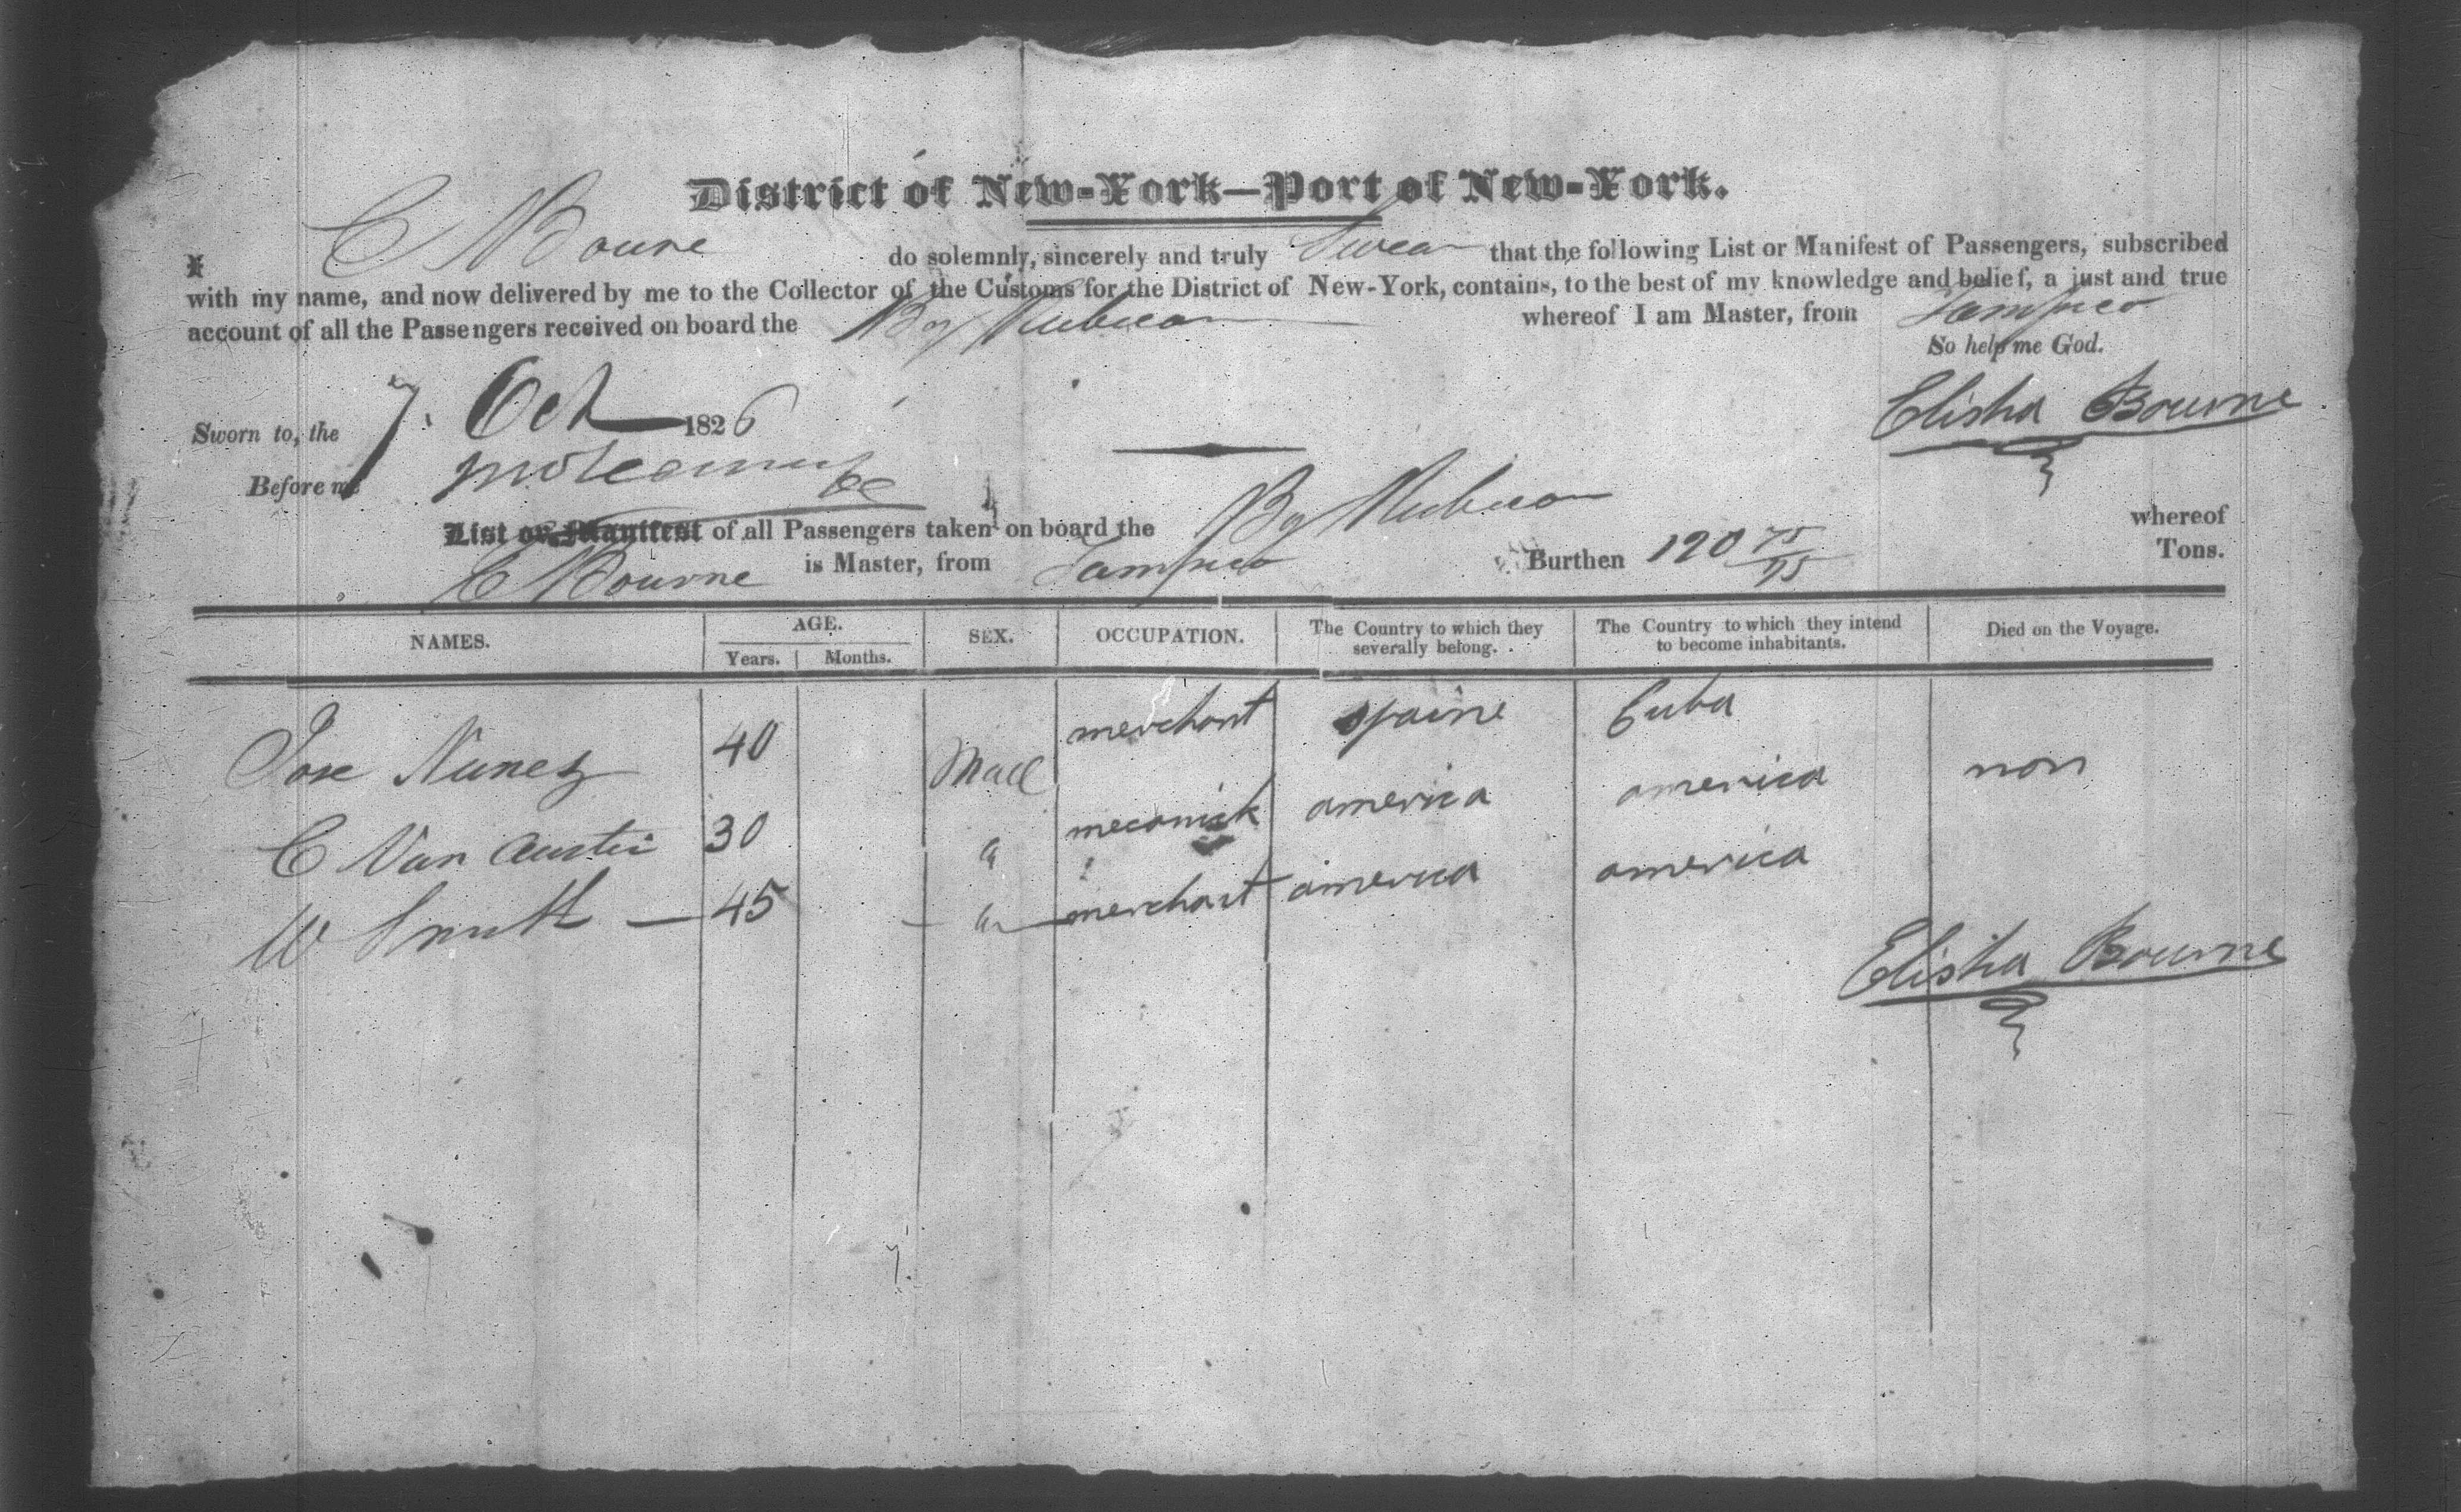 District of New-York—Port of New-York.
I E Bourne do solemnly, sincerely and truly Swear that the following List or Manifest of Passengers, subscribed
with my name, and now delivered by me to the Collector of the Customs for the District of New-York, contains, to the best of my knowledge and belief, a just and true
account of all the Passengers received on board the Bg whereof I am Master, from Tampico
So help me God.
Sworn to, the 7. Oct 1826
Elisha Bourne
Before me
List or Manifest of all Passengers taken on board the Bg whereof
E Bourne is Master, from Tampico Burthen 120 75/95 Tons.
NAMES. AGE. Years. Months. SEX. OCCUPATION. The Country to which they severally belong. The Country to which they intend to become inhabitants. Died on the Voyage.
Jose Nunez 40 Male merchant Spaine Cuba non
C Van 30 " mecanick america america
W Smith — 45 " merchant america america
Elisha Bourne